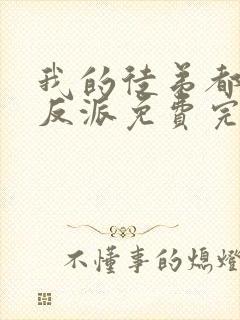 我的徒弟都
反派免费完
不懂事的熄燈